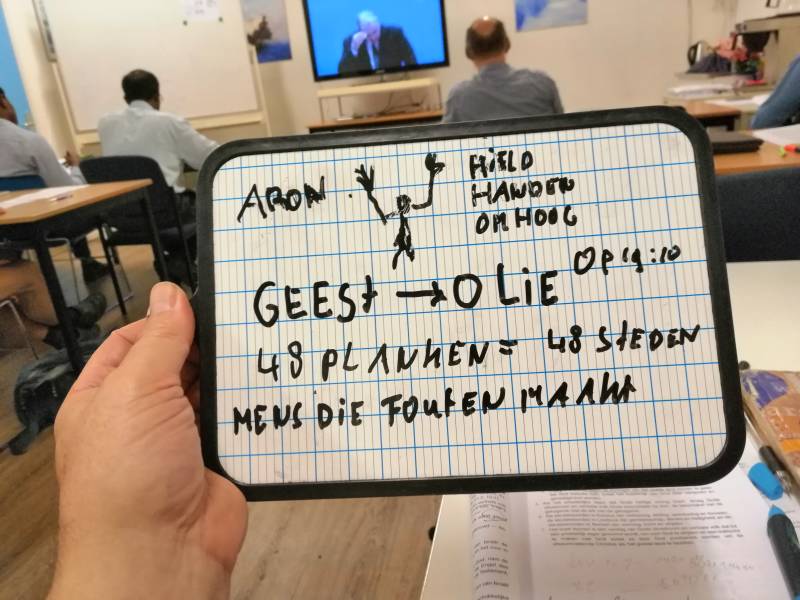 ARON
HIELD
HANDEN
OMHOOG
GEEST → OLIE Op 19:10
48 PLANKEN = 48 STEDEN
MENS DIE FOUTEN MAAKT